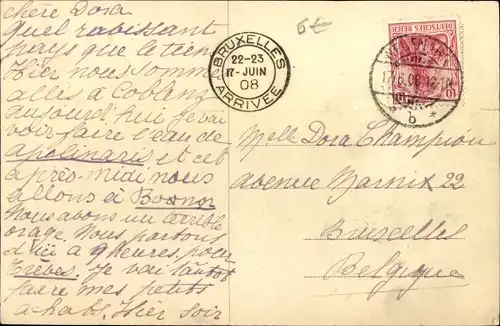 chere Dora
Quel ravissant
pays que le tien
Hier nous sommes
allés à Coblenz
aujourd'hui je vai
voir faire l'eau de
apolinaris et cet
après-midi nous
allons à Bonn
Nous avons un terrible
orage. Nous partons
d'ici a 9 heures pour
Trèves. Je vai tantôt
faire mes petits
achats. Hier soir
6€
BRUXELLES
22-23
17-JUIN
08
ARRIVÉE
DEUTSCHES REICH
10
17.6.08
b
Melle Dora Champion
avenue Marnix 22
Bruxelles
Belgique